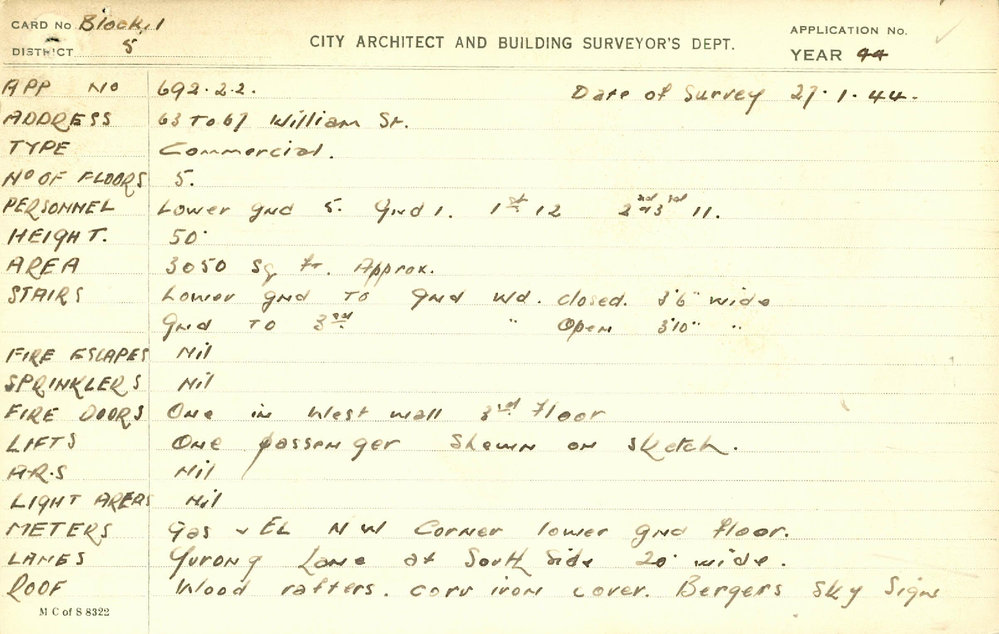 CARD No Block 1
DISTRICT 5
CITY ARCHITECT AND BUILDING SURVEYOR'S DEPT.
APPLICATION No.
YEAR 44
APP NO 692.22. Date of Survey 27.1.44.
ADDRESS 63 to 67 William St.
TYPE Commercial.
No OF FLOORS 5.
PERSONNEL Lower gnd 5. Gnd 1. 1st 12 2nd 3rd 11.
HEIGHT. 50'
AREA 3050 Sq ft. Approx.
STAIRS Lower gnd to Gnd wd. closed. 3'6" wide
Gnd to 3rd " Open 3'10" "
FIRE ESCAPES Nil
SPRINKLERS Nil
FIRE DOORS One in West wall 3rd Floor
LIFTS One passenger Shewn on sketch.
A.R.S Nil
LIGHT AREAS Nil
METERS Gas & EL NW Corner lower gnd floor.
LANES Yurong Lane at South Side 20' wide.
ROOF Wood rafters. corr iron cover. Bergers Sky Sign
M C of S 8322